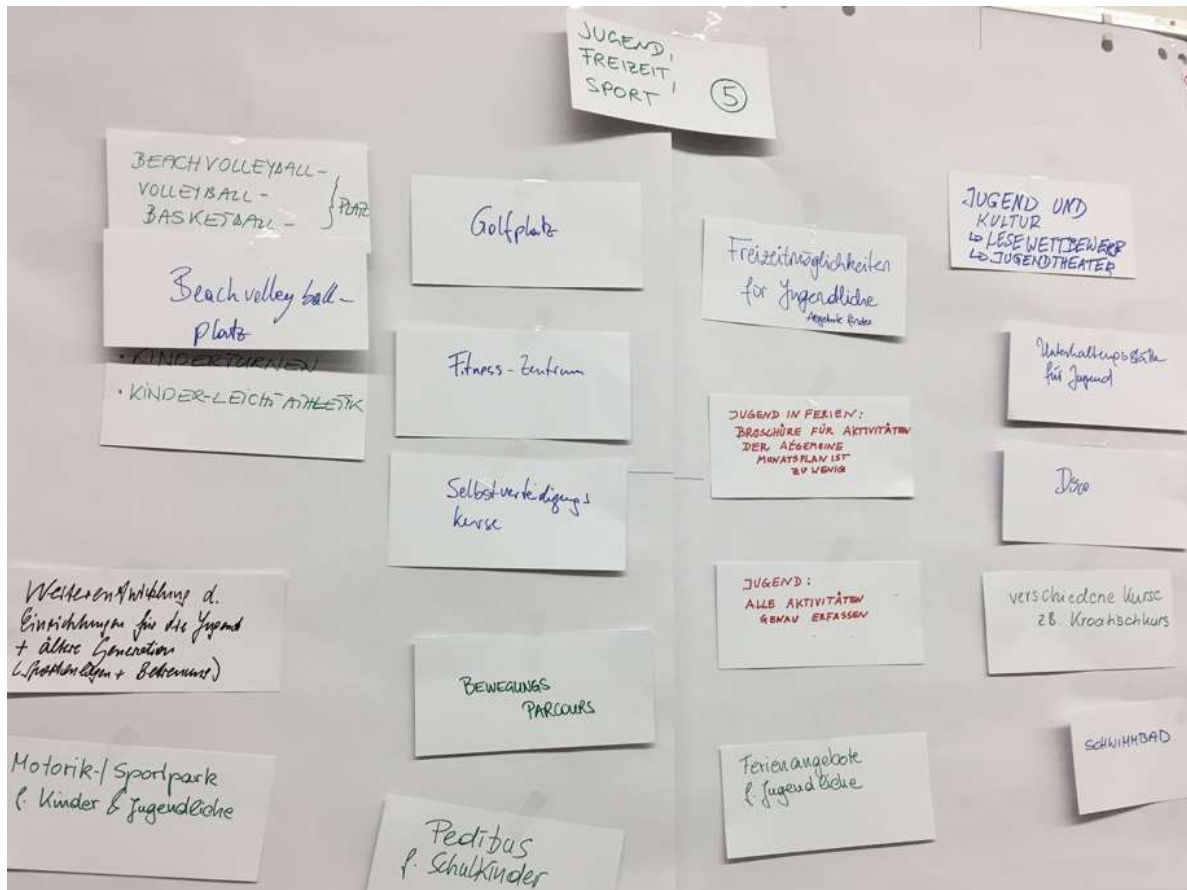 JUGEND,
FREIZEIT,
SPORT 5
BEACHVOLLEYBALL-
VOLLEYBALL-
BASKETBALL- } PLATZ
Beachvolleyball-
platz
• KINDERTURNEN
• KINDER-LEICHTATHLETIK
Weiterentwicklung d.
Einrichtungen für die Jugend
+ ältere Generation
(Sportanlagen + Betreuung)
Motorik-/Sportpark
f. Kinder & Jugendliche
Golfplatz
Fitness-Zentrum
Selbstverteidigungs
kurse
BEWEGUNGS
PARCOURS
Pedibus
f. Schulkinder
Freizeitmöglichkeiten
für Jugendliche
Angebote finden
JUGEND IN FERIEN:
BROSCHÜRE FÜR AKTIVITÄTEN
DER ALGEMEINE
MONATSPLAN IST
ZU WENIG
JUGEND:
ALLE AKTIVITÄTEN
GENAU ERFASSEN
Ferienangebote
f. Jugendliche
JUGEND UND
KULTUR
↳ LESEWETTBEWERB
↳ JUGENDTHEATER
Unterhaltungsstätte
für Jugend
Disco
verschiedene Kurse
zB. Kroatischkurs
SCHWIMMBAD